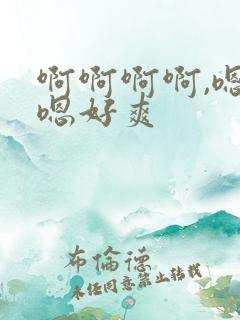 啊啊啊啊,嗯
嗯好爽
布倫德
未经同意禁止转载